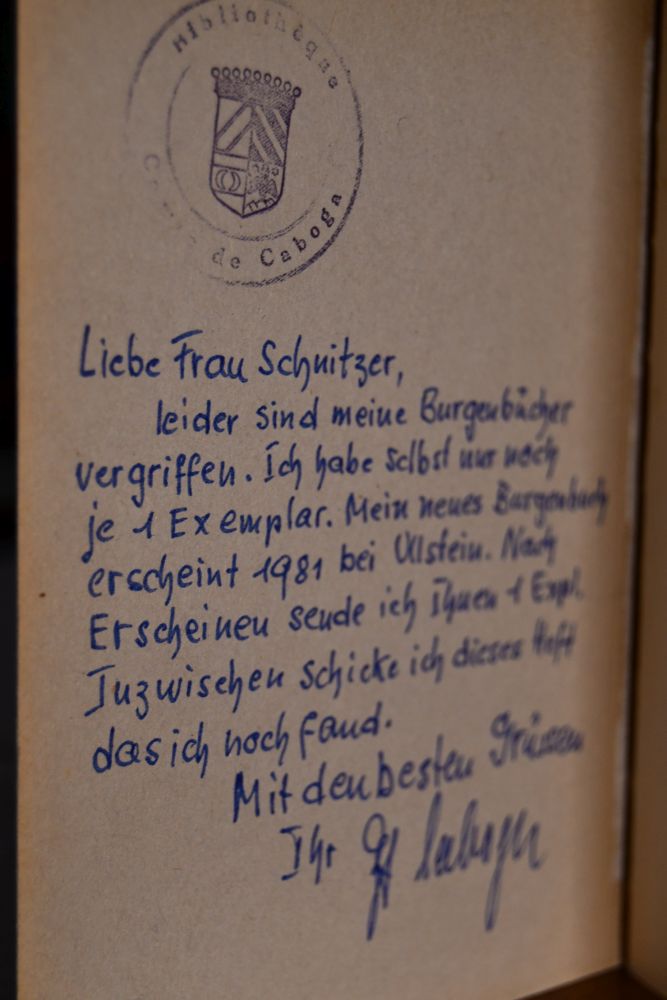 Bibliothèque
Comte de Caboga
Liebe Frau Schnitzer,
leider sind meine Burgenbücher
vergriffen. Ich habe selbst nur noch
je 1 Exemplar. Mein neues Burgenbuch
erscheint 1981 bei Ullstein. Nach
Erscheinen sende ich Ihnen 1 Expl.
Inzwischen schicke ich dieses Heft
das ich noch fand.
Mit den besten Grüssen
Ihr Gf Caboga